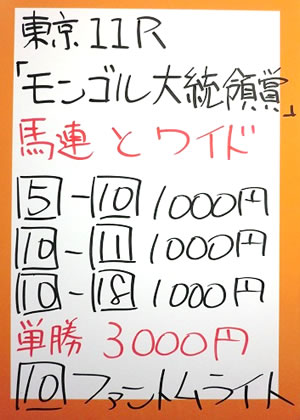 東京11R
「モンゴル大統領賞」
馬連とワイド
5-10 1000円
10-11 1000円
10-18 1000円
単勝 3000円
10 ファントムライト